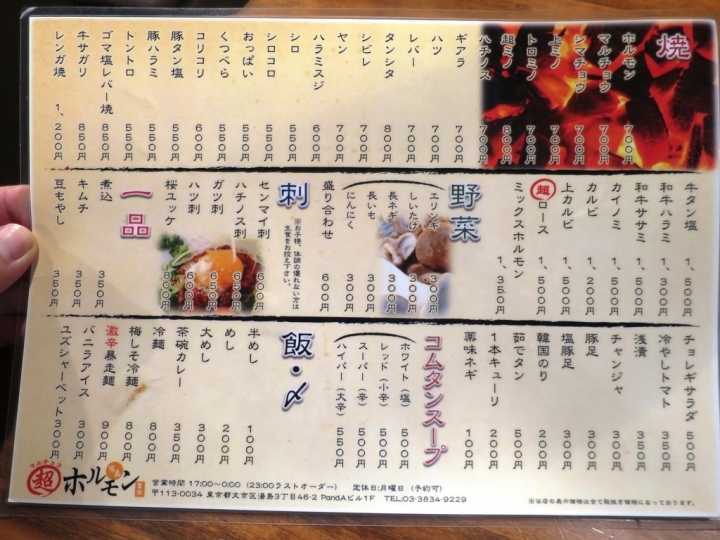 焼
ホルモン 700円
マルチョウ 700円
シマチョウ 700円
上ミノ 700円
トロミノ 700円
超ミノ 800円
ハチノス 700円
ギアラ 700円
ハツ 700円
レバー 700円
タンシタ 800円
シビレ 700円
ヤン 700円
ハラミスジ 600円
シロ 550円
シロコロ 550円
おっぱい 550円
くつべら 550円
コリコリ 600円
豚タン塩 550円
豚ハラミ 550円
トントロ 550円
ゴマ塩レバー焼 850円
牛サガリ 850円
レンガ焼 1,200円
牛タン塩 1,500円
和牛ハラミ 1,300円
和牛ササミ 1,500円
カイノミ 1,500円
カルビ 1,200円
上カルビ 1,500円
超ロース 1,500円
ミックスホルモン 1,350円
野菜
エリンギ 300円
しいたけ 300円
長ネギ 300円
長いも 300円
にんにく 300円
盛り合わせ 600円
刺
※お子様、体調の優れない方は
生食をお控え下さい。
センマイ刺 600円
ハチノス刺 650円
ガツ刺 650円
ハツ刺 650円
桜ユッケ 800円
一品
煮込 350円
キムチ 350円
豆もやし 350円
チョレギサラダ 500円
冷やしトマト 350円
浅漬 350円
チャンジャ 350円
豚足 300円
塩豚足 300円
韓国のり 200円
茹でタン 500円
1本キューリ 200円
薬味ネギ 100円
コムタンスープ
ホワイト(塩) 500円
レッド(小辛) 500円
スーパー(辛) 500円
ハイパー(大辛) 550円
飯・〆
半めし 100円
めし 200円
大めし 300円
茶碗カレー 350円
冷麺 800円
梅しそ冷麺 800円
激辛暴走麺 900円
バニラアイス 300円
ユズシャーベット 300円
超 ホルモン
営業時間 17:00〜0:00 (23:00ラストオーダー) 定休日:月曜日 (予約可)
〒113-0034 東京都文京区湯島3丁目46-2 PandAビル1F TEL:03-3834-9229
※当店の表中価格は全て税抜き価格になっております。